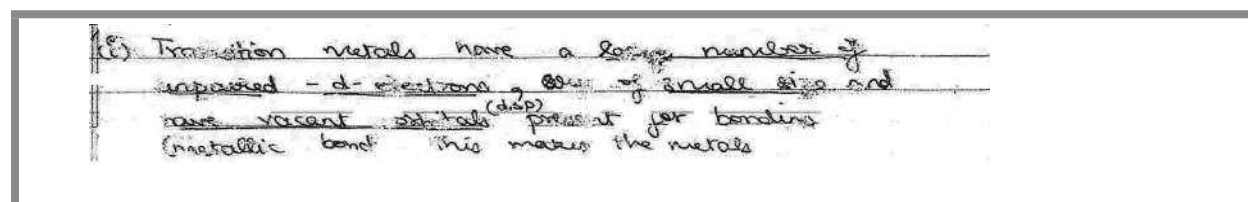 (i) Transition metals have a large number of
unpaired - d - electrons, are of small size and
have vacant orbitals (d,s,p) present for bonding
(metallic bond This makes the metals